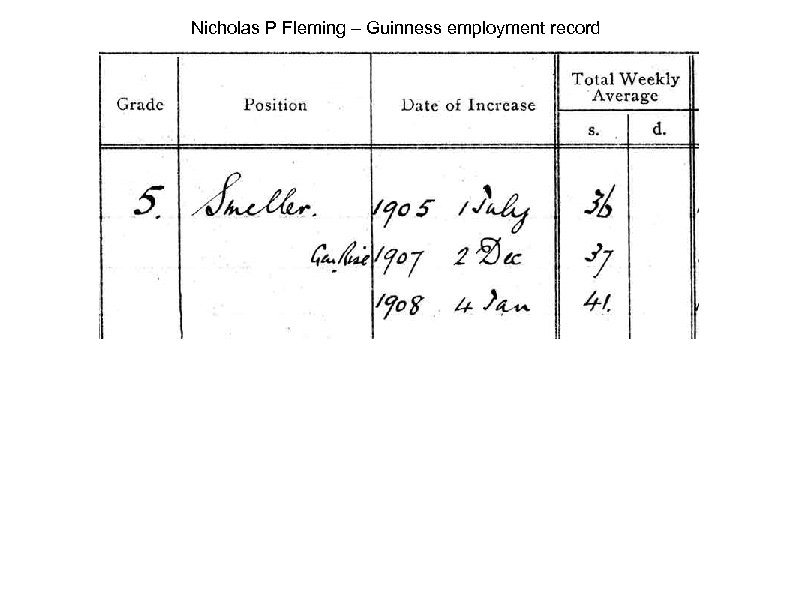 Nicholas P Fleming – Guinness employment record
Grade Position Date of Increase Total Weekly Average
s. d.
5. Smeller. 1905 1 July 36
Gen. Rise 1907 2 Dec 37
1908 4 Jan 41.